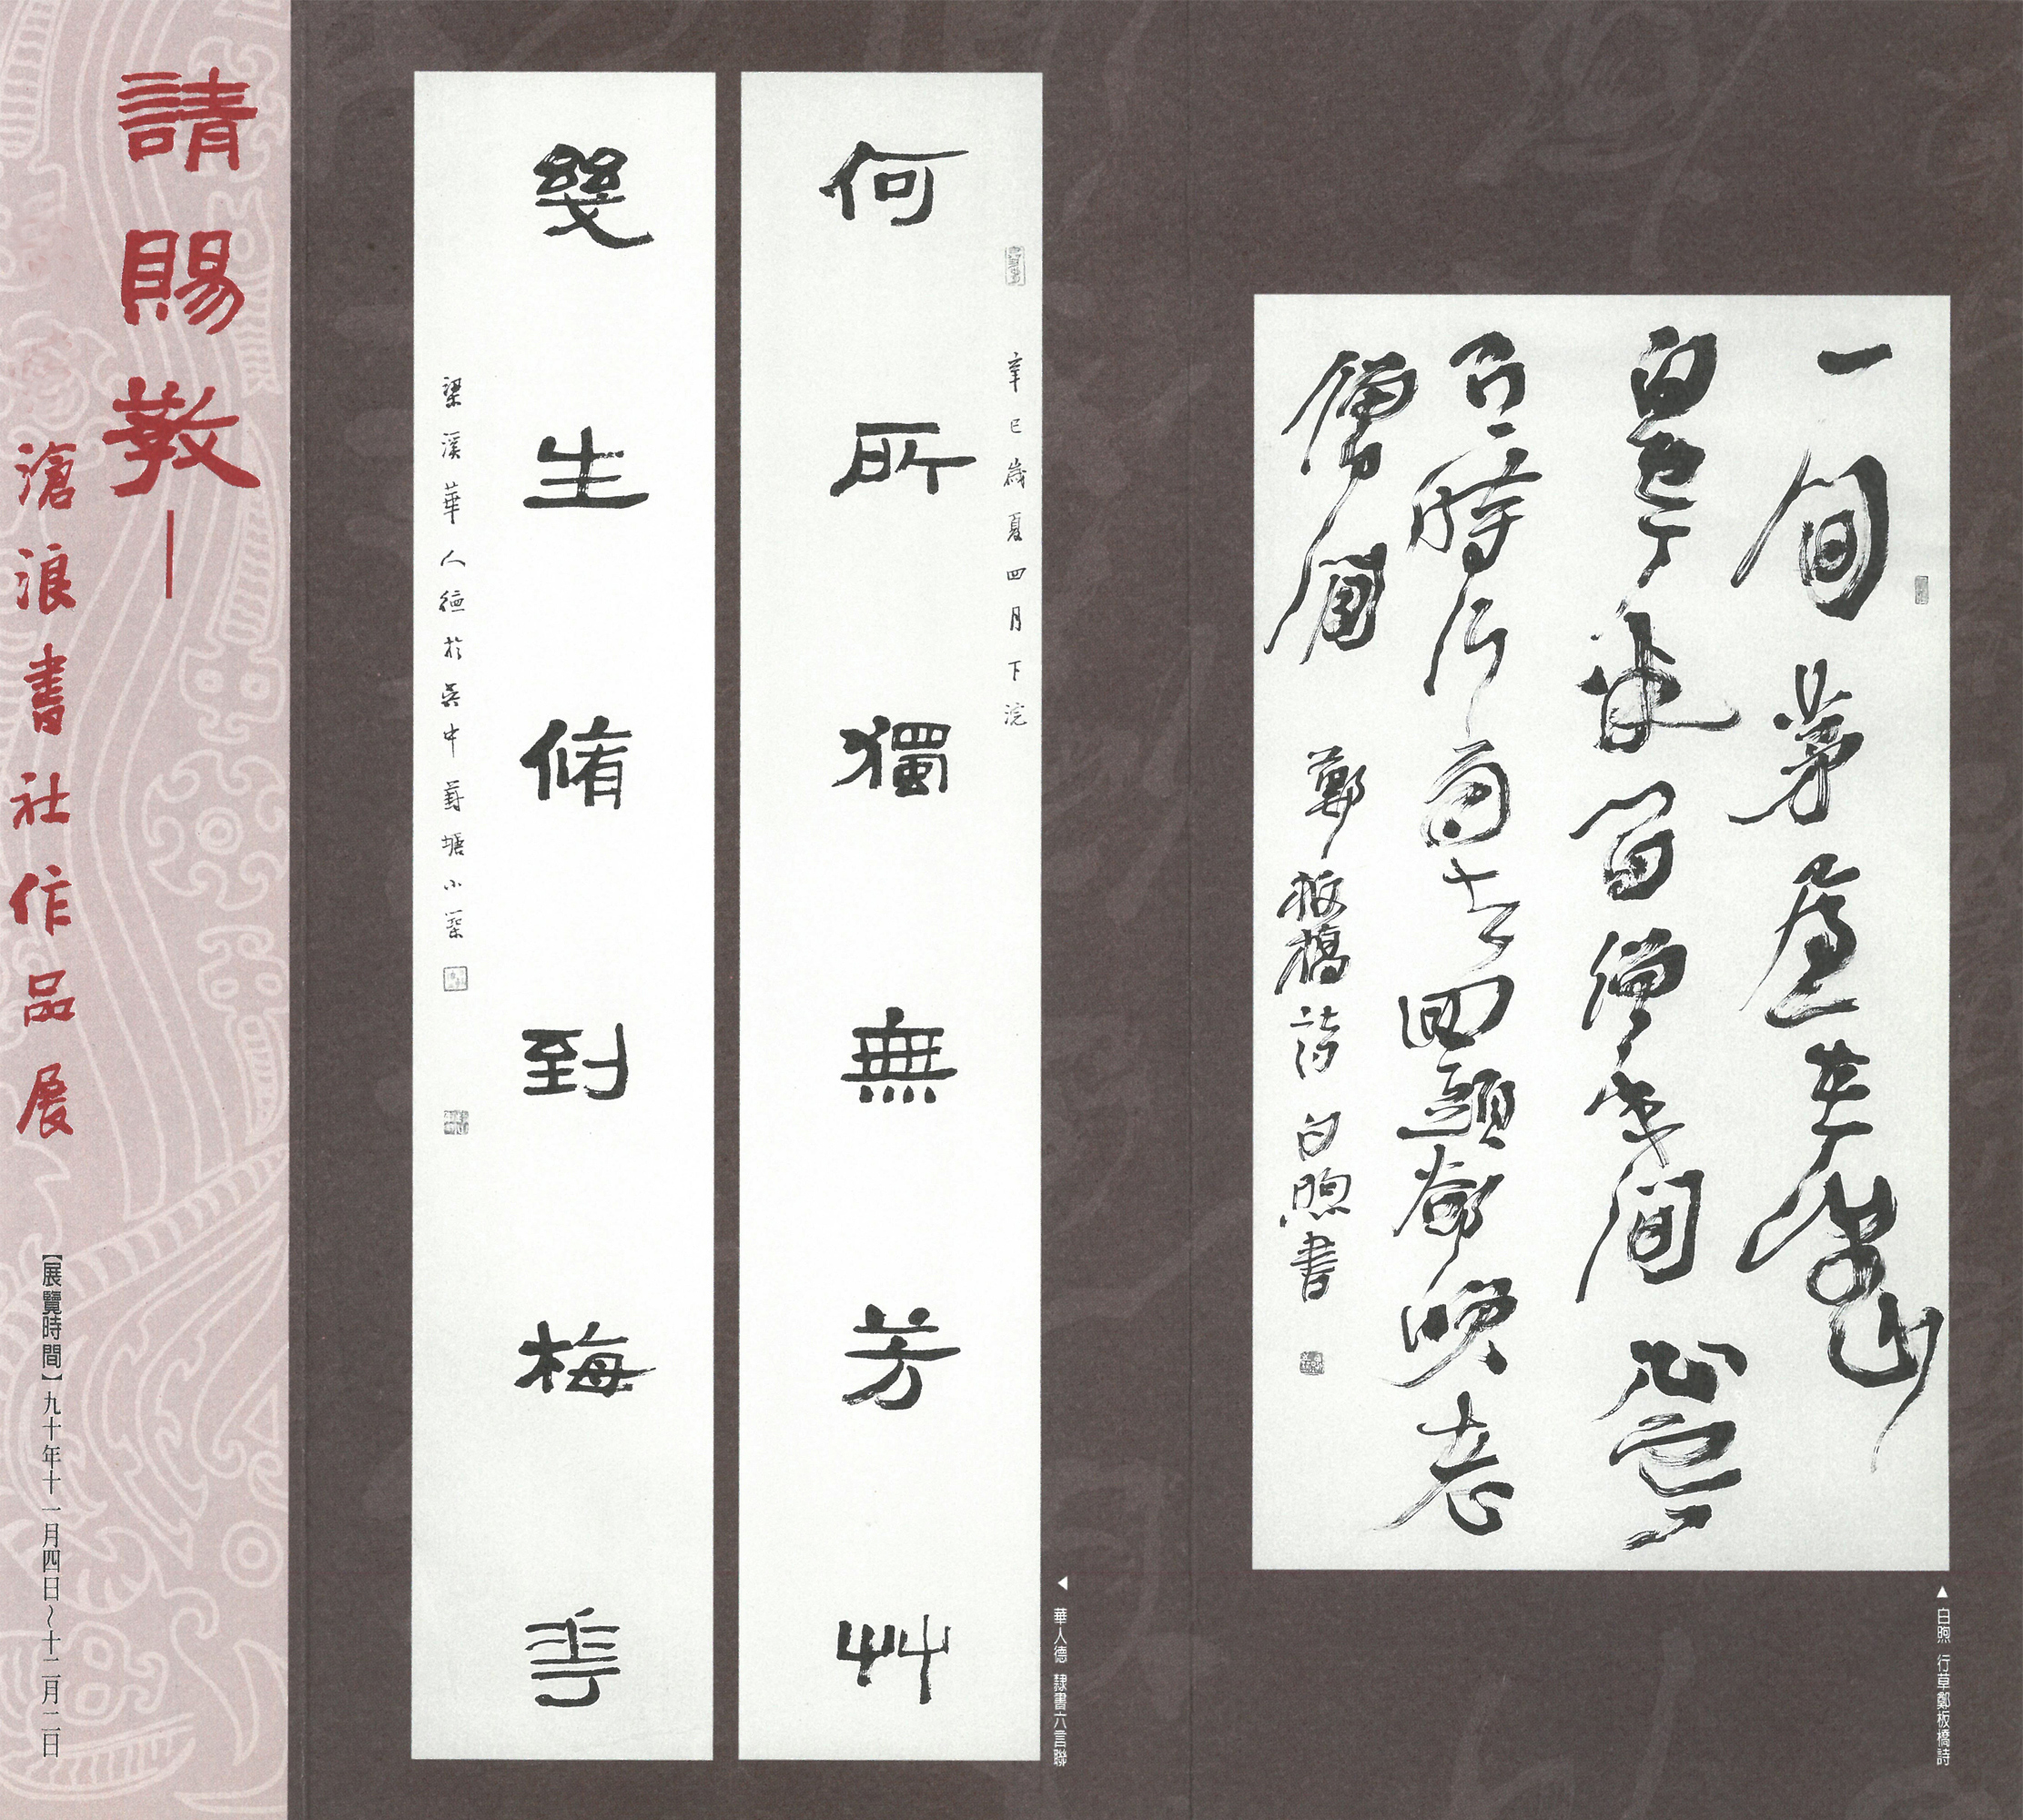 一間茅廬在深山
白雲半間僧半間白雲
有時行雨去回頭卻羨老
僧閒
鄭板橋詩 白煦書
▲白煦 行草鄭板橋詩
辛巳歲夏四月下浣
何所獨無芳艸
幾生脩到梅華
梁溪華人德於吳中葑塘小築
◀華人德 隸書六言聯
請賜教—
滄浪書社作品展
【展覽時間】九十年十一月四日~十二月二日